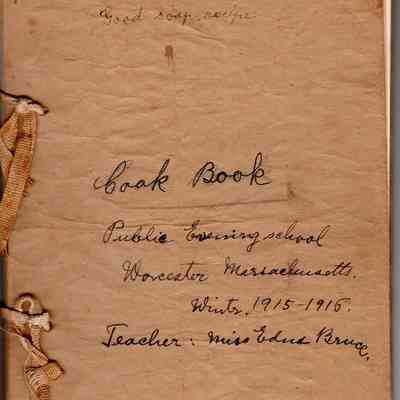 Good soap recipe
Cook Book
Public Evening school
Worcester Massachusetts.
Winter, 1915-1916.
Teacher: Miss Edna Bruce.